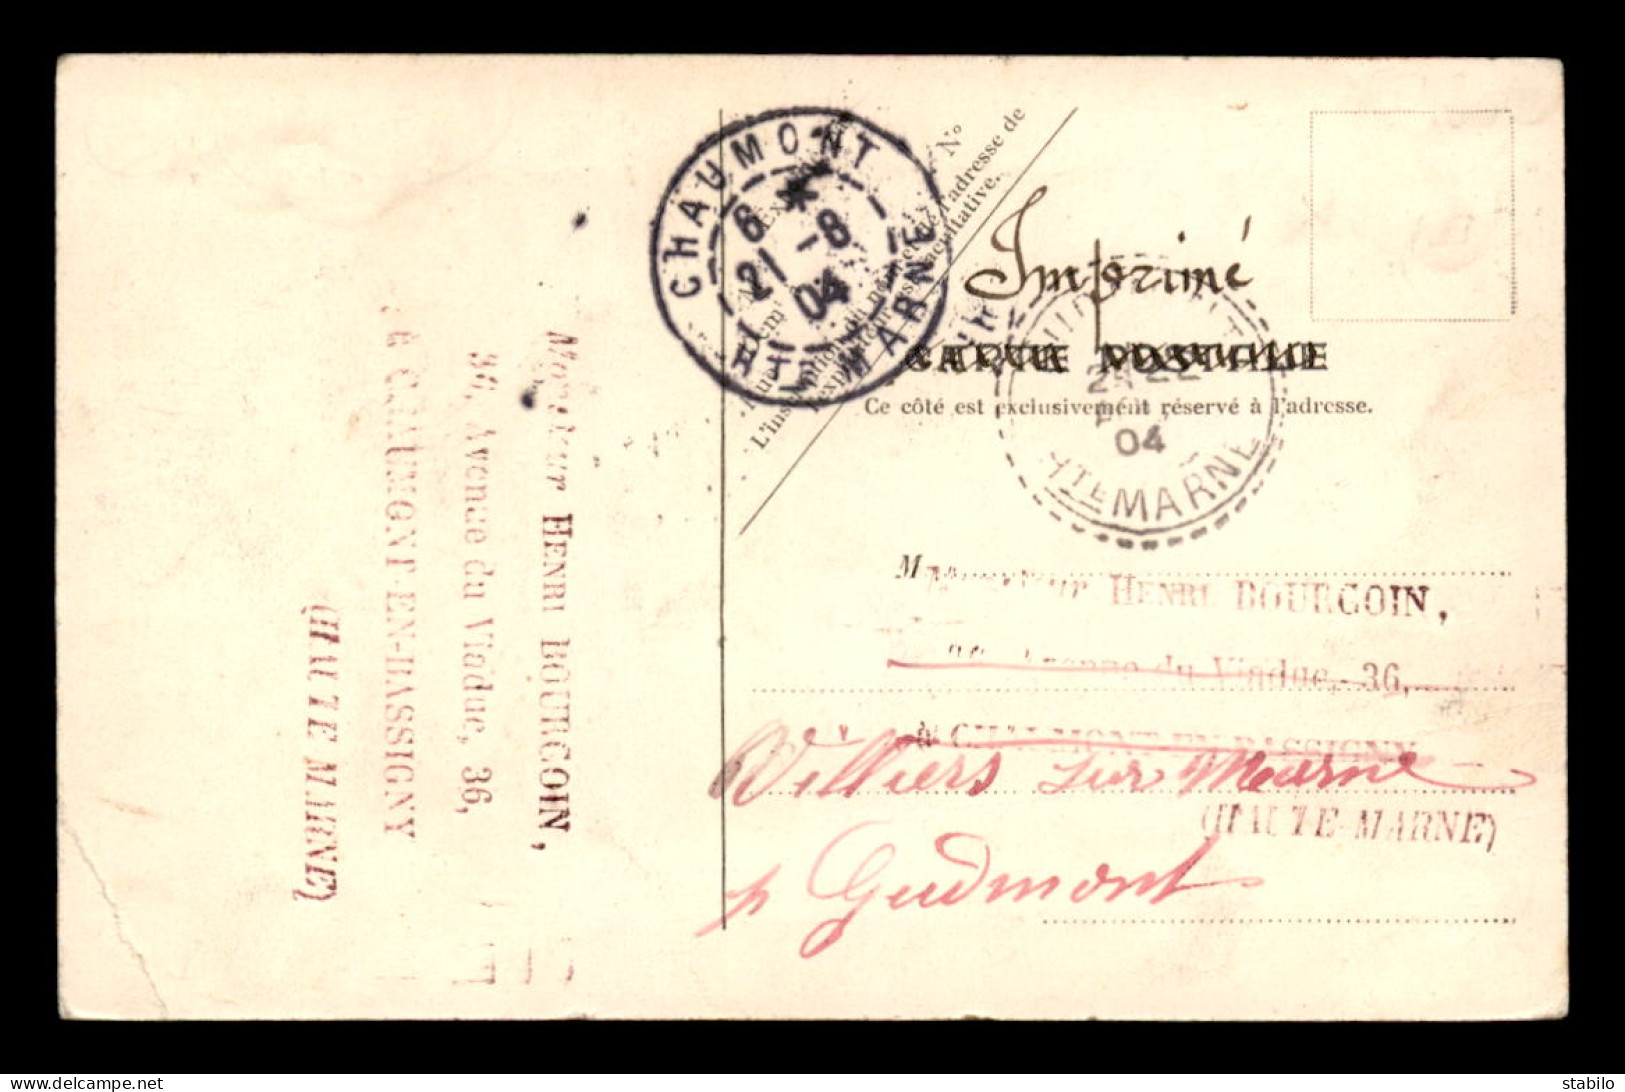 CHAUMONT
6
21 -8
04
HTE MARNE
N°
L'inscription du nom et de l'adresse de
l'expéditeur est facultative.
Imprimé
CARTE POSTALE
Ce côté est exclusivement réservé à l'adresse.
22
04
HTE MARNE
Monsieur HENRI BOURGOIN,
36, Avenue du Viaduc, 36,
à CHAUMONT-EN-BASSIGNY
(HAUTE-MARNE)
Villiers sur Marne
p Gudmont
Monsieur HENRI BOURGOIN,
36, Avenue du Viaduc, 36,
à CHAUMONT-EN-BASSIGNY
(HAUTE MARNE)
delcampe.net
stabilo